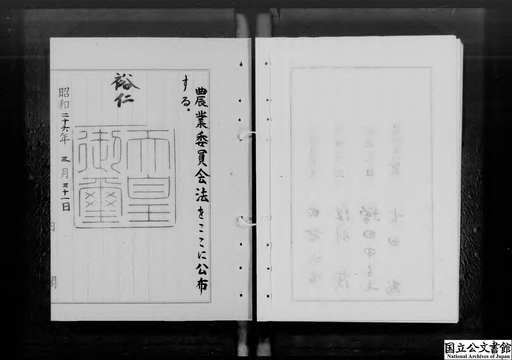 農業委員会法をここに公布
する。
裕仁
天皇
御璽
昭和二十六年 三月三十一日
国立公文書館
National Archives of Japan